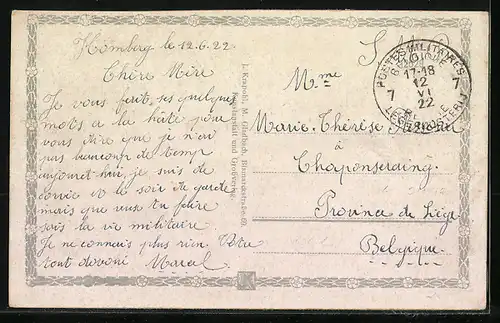 Homberg le 12.6.22
Chère Mère
Je vous ecrit ses quelques
mots a la hâte pour
vous dire que je n'ai
pas beaucoup de temp
aujourd hui, je suis de
corvée et le soir de garde
mais que veux tu faire
sais la vie militaire.
Je ne connais plus rien. Votre
tout devoué Marcel
J. Krapohl, M. Gladbach, Bismarckstraße 60.
Kunstanstalt und Großverlag.
S. M.
POSTES MILITAIRES
BELGIQUE
17-18
12
VI
22
7 7
LEGERPOSTERIJ
Mme
Marie-Thérèse
à
Chaponseraing
Province de Liège
Belgique